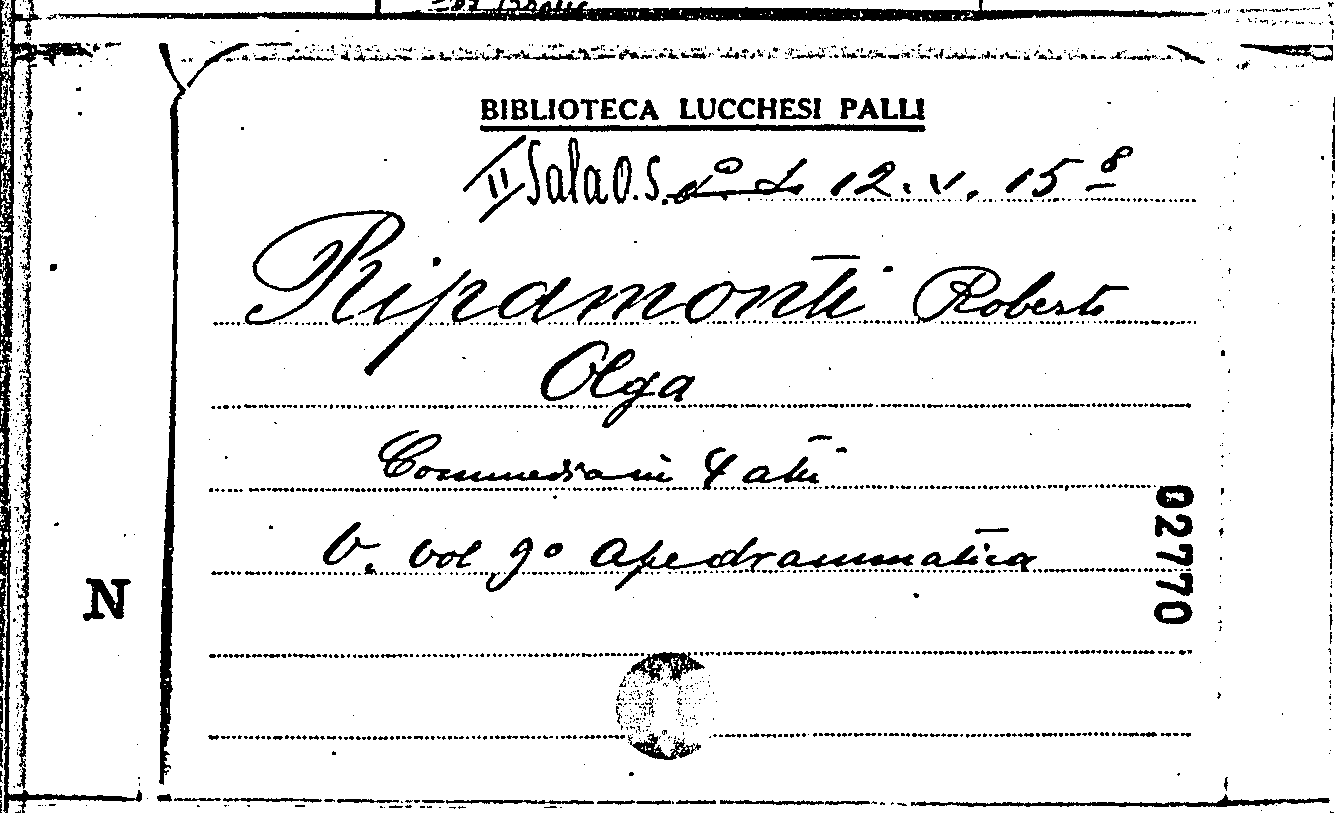 BIBLIOTECA LUCCHESI PALLI
II Sala O.S. 12. V. 15 8
Ripamonti Roberto
Olga
Commedia in 4 atti
V. vol 9° Ape drammatica
02770
N